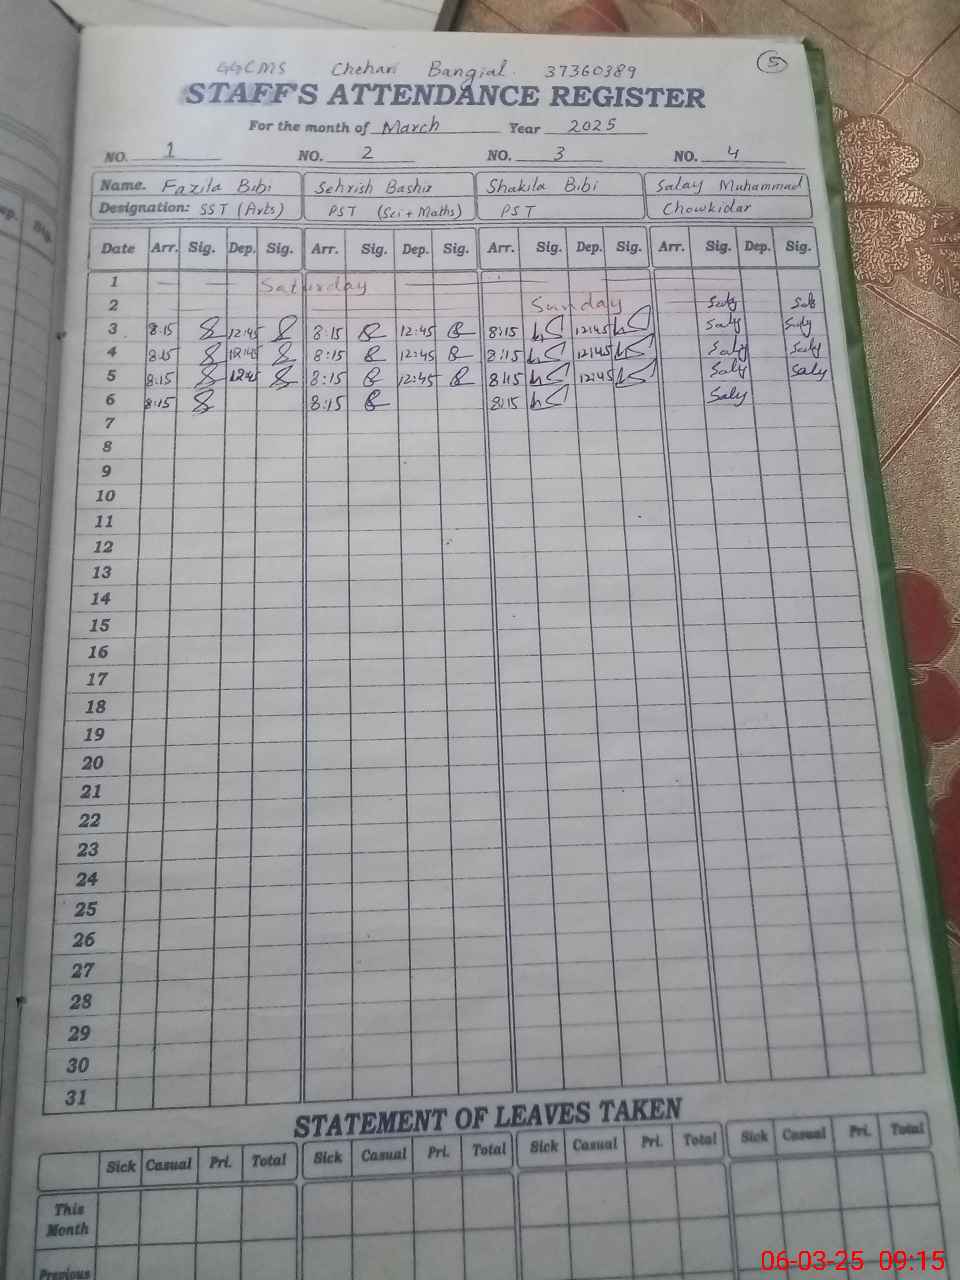 GGCMS Chehari Bangial. 37360389
5
STAFF'S ATTENDANCE REGISTER
For the month of March Year 2025
NO. 1 NO. 2 NO. 3 NO. 4
Name. Fazila Bibi Sehrish Bashir Shakila Bibi Salay Muhammad
Designation: SST (Arts) PST (Sci + Maths) PST Chowkidar
Date Arr. Sig. Dep. Sig. Arr. Sig. Dep. Sig. Arr. Sig. Dep. Sig. Arr. Sig. Dep. Sig.
1 Saturday
2 Sunday
3 8:15 12:45 8:15 12:45 8:15 12:45 Saly Saly
4 8:15 12:45 8:15 12:45 8:15 12:45 Saly Saly
5 8:15 12:45 8:15 12:45 8:15 12:45 Saly Saly
6 8:15 8:15 8:15 Saly
7
8
9
10
11
12
13
14
15
16
17
18
19
20
21
22
23
24
25
26
27
28
29
30
31
STATEMENT OF LEAVES TAKEN
Sick Casual Pri. Total Sick Casual Pri. Total Sick Casual Pri. Total Sick Casual Pri. Total
This
Month
Previous
06-03-25 09:15